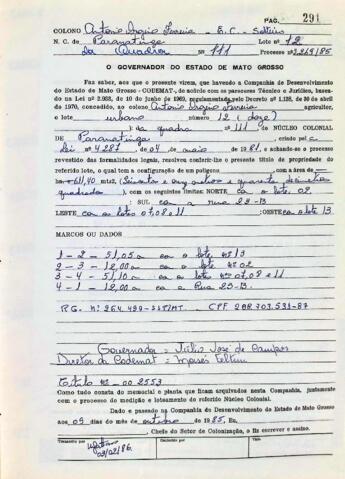 PAG. 291
COLONO Antonio Ferreira - E.C. - solteiro
N. C. de Paranatinga Lote nº 12
da Quadra Nº 111 Pnº 2.269/85
O GOVERNADOR DO ESTADO DE MATO GROSSO
Faz saber, aos que o presente virem, que havendo a Companhia de Desenvolvimento
do Estado de Mato Grosso - CODEMAT, de acôrdo com os pareceres Técnico e Jurídico, basea-
da na Lei nº 2.953, de 10 de junho de 1969, regulamentada pelo Decreto nº 1.138, de 30 de abril
de 1970, concedido, ao colono Antonio Ferreira agricultor,
e o lote urbano número 12 (doze)
da quadra nº 111 DE NÚCLEO COLONIAL
DE Paranatinga, criado pel a
Lei nº 4287, de 04 de maio de 1.981, e achando-se o processo
revestido das formalidades legais, resolveu conferir-lhe o presente título de propriedade do
referido lote, o qual tem a configuração de um polígono com a área de
611,40 mts2, (Seiscentos e onze metros e quarenta decimetros
quadrados), com os seguintes limites: NORTE com o lote 02
: SUL com a rua 23-B
LESTE com os lotes 07,08 e 11 : OESTE com o lote 13.
MARCOS OU DADOS
1 - 2 - 51,05m com o lote nº 13
2 - 3 - 12,00m com o lote nº 02
3 - 4 - 51,10m com os lotes nº 07,08 e 11
4 - 1 - 12,00m com a Rua 23-B.
RG. Nº 264.499-SSP/MT CPF 208.703.531-87
Governador = Júlio José de Campos
Diretor da Codemat = Moisés Feltrin
Título nº 00.2553
Como tudo consta do memorial e planta que ficam arquivados nesta Companhia, juntamente
com o processo de medição e loteamento do referido Núcleo Colonial.
Dado e passado na Companhia de Desenvolvimento do Estado de Mato Grosso
aos 09 dias do mês de outubro de 1985. Eu,
, Chefe do Setor de Colonização, o fiz escrever e assino.
03/02/86.